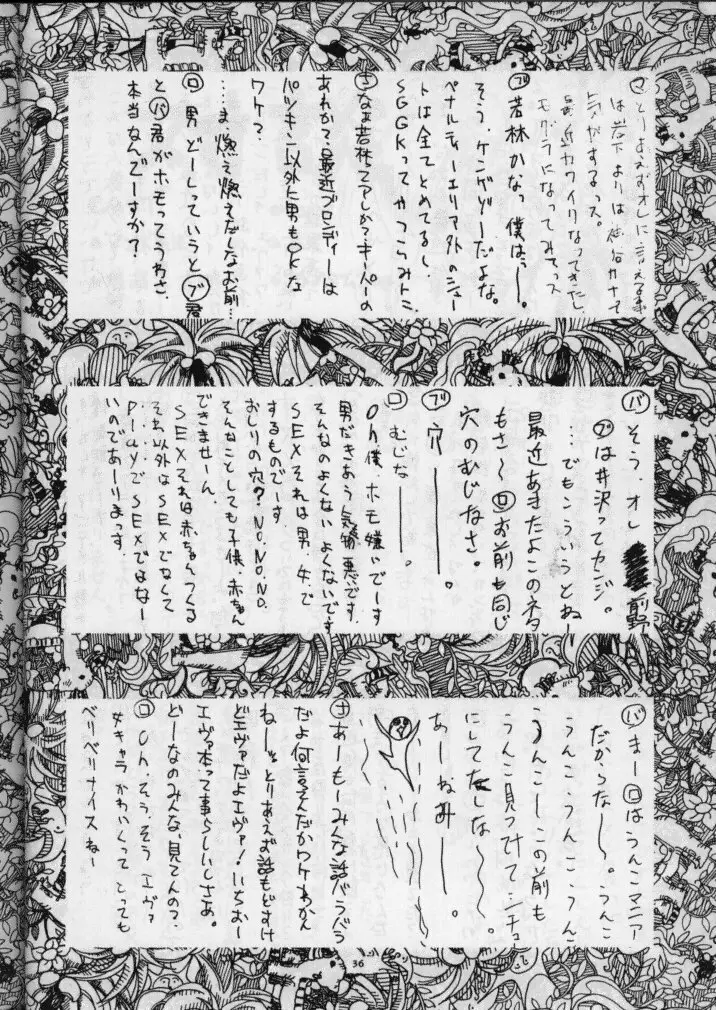 マ とりあえずオレに言える事
は岩下よりは
気がするっス。
最近カワイクなってきたし
モグラになってみてっス
ブ 若林かなっ 僕はっー。
そう、ケンゲドーだよな。
ペナルティーエリア外のシュー
トは全てとめてるし、
SGGKってやつらみトミ
キ なぁ若林ってアレか？キーパーの
あれか？、最近ブロンディーは
パツキン以外に男もOKな
ワケ？
…ま、燃え燃えだしなお前…
ロ 男どーしっていうとブ君
とバ君がホモってうわさ、
本当なんでーすか？
バ そう、オレ 前野
ブは井沢ってカンジ。
…でもこういうとねー
最近あきたよこのネタ
もさ〜ロお前も同じ
穴のむじなさ。
ブ 穴ーーー。
ロ むじなーーー。
Oh、僕、ホモ嫌いでーす
男だきあう気持悪いです。
そんなのよくないよくないです
SEXそれは男、女で
するものでーす。
おしりの穴？NO、NO、NO、
そんなことしても子供、赤ちゃん
できませーん
SEXそれは赤ちゃんつくる
それ以外はSEXでなくして
……PlayでSEXではなー
いのでありまーす。
バ まーロはうんこマニア
だからなー〜。うんこ
うんこ、うんこ、うんこ
うんこーこの前も
うんこ見ってて
にしてたしな〜〜。
あーねみーー。
キ あーもーみんな話バラバラ
だよ何言ってんだかワケわかん
ねーっ。とりあえず話もどすけ
どエヴァだよエヴァ！いちおー
エヴァ本って事らしいしさあ。
どーなのみんな、見てんの？、
ロ Oh、そう、そうエヴァ
女キャラかわいくってとっても
ベリーベリナイスねー
36